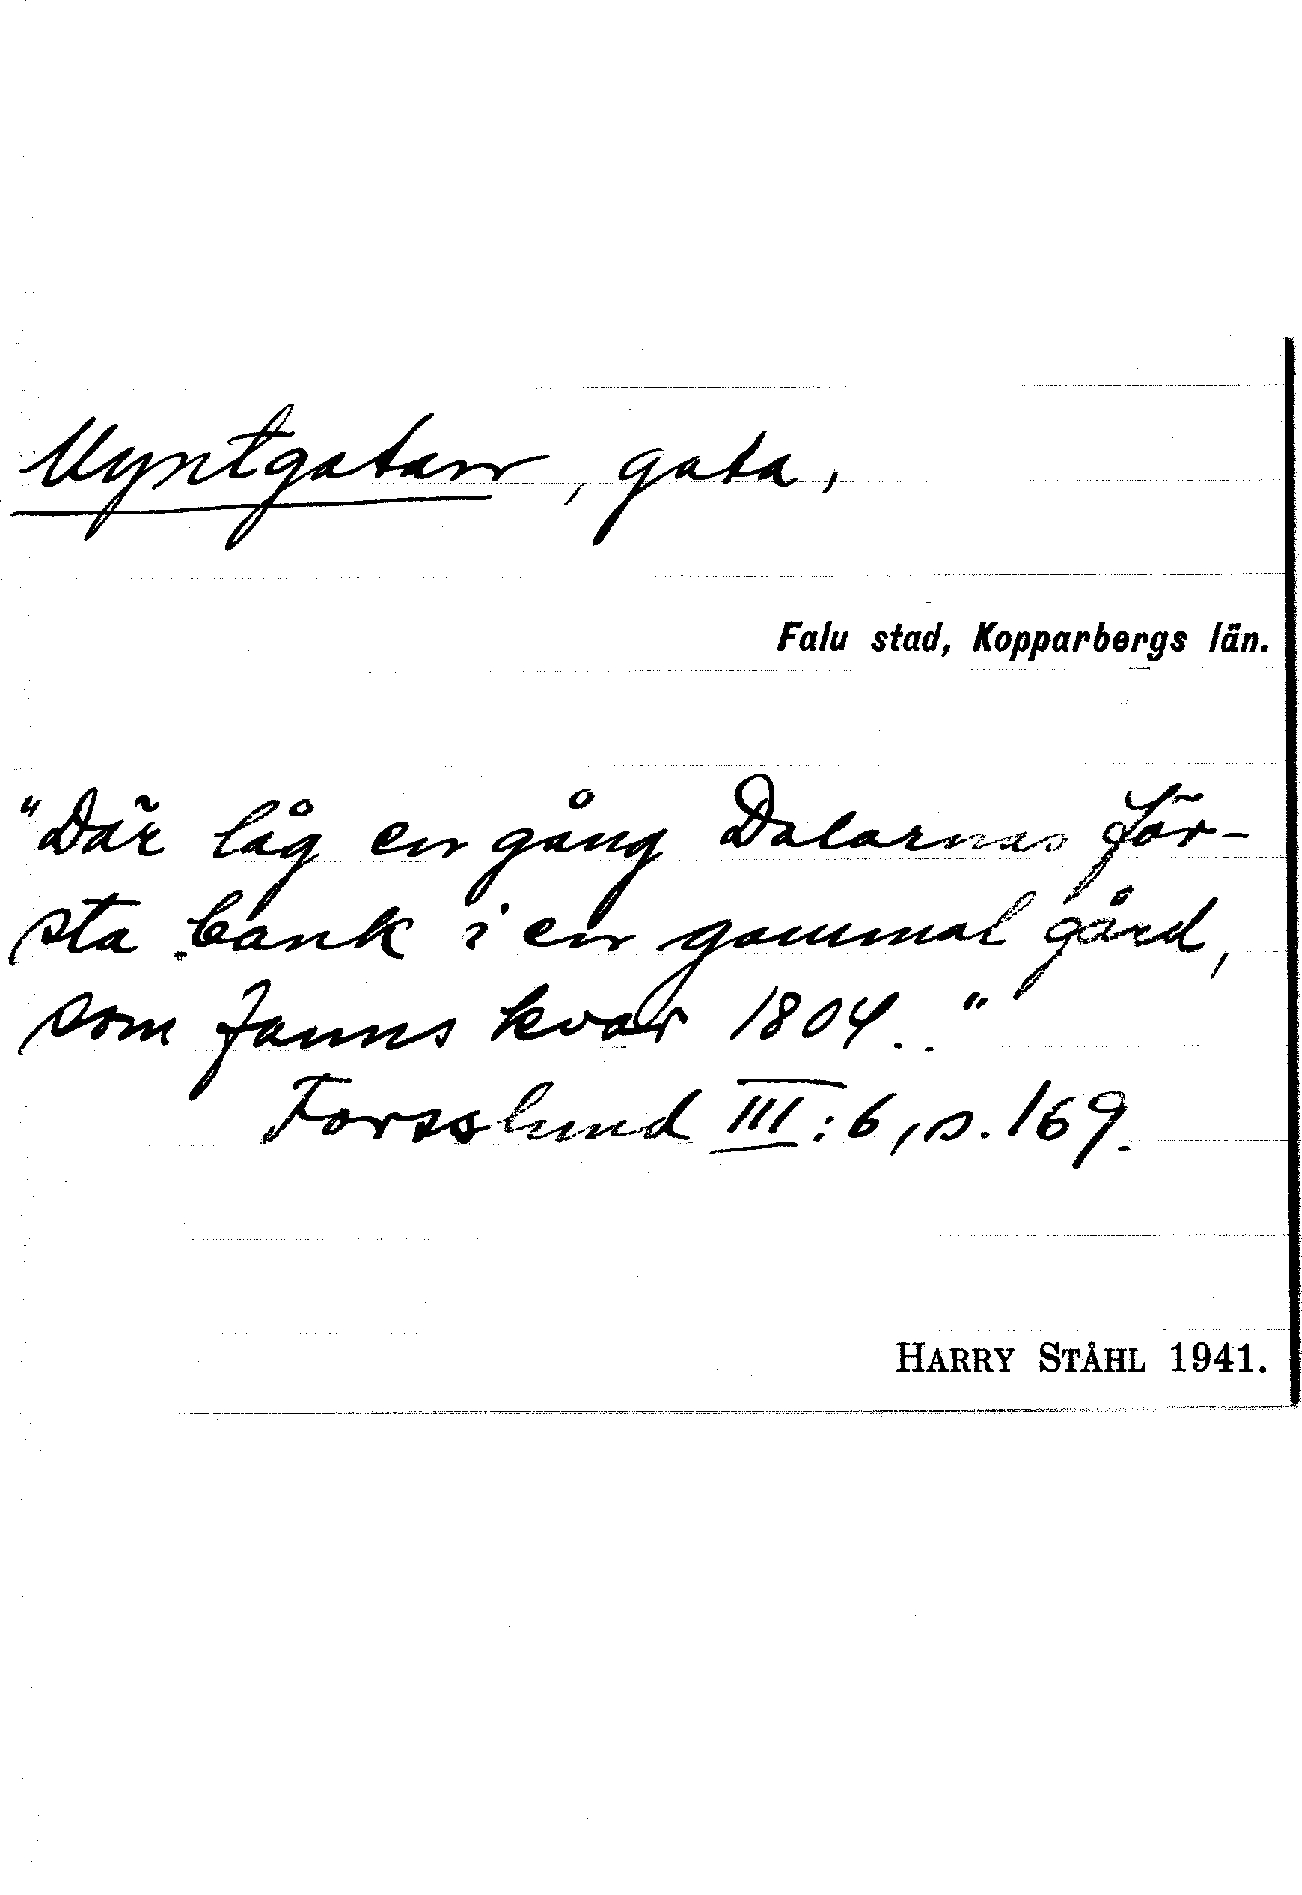 Myntgatan, gata,
Falu stad, Kopparbergs län.
"Där låg en gång Dalarnas för-
sta bank i en gammal gård,
som fanns kvar 1804.."
Forsslund III:6, s. 169.
HARRY STÅHL 1941.